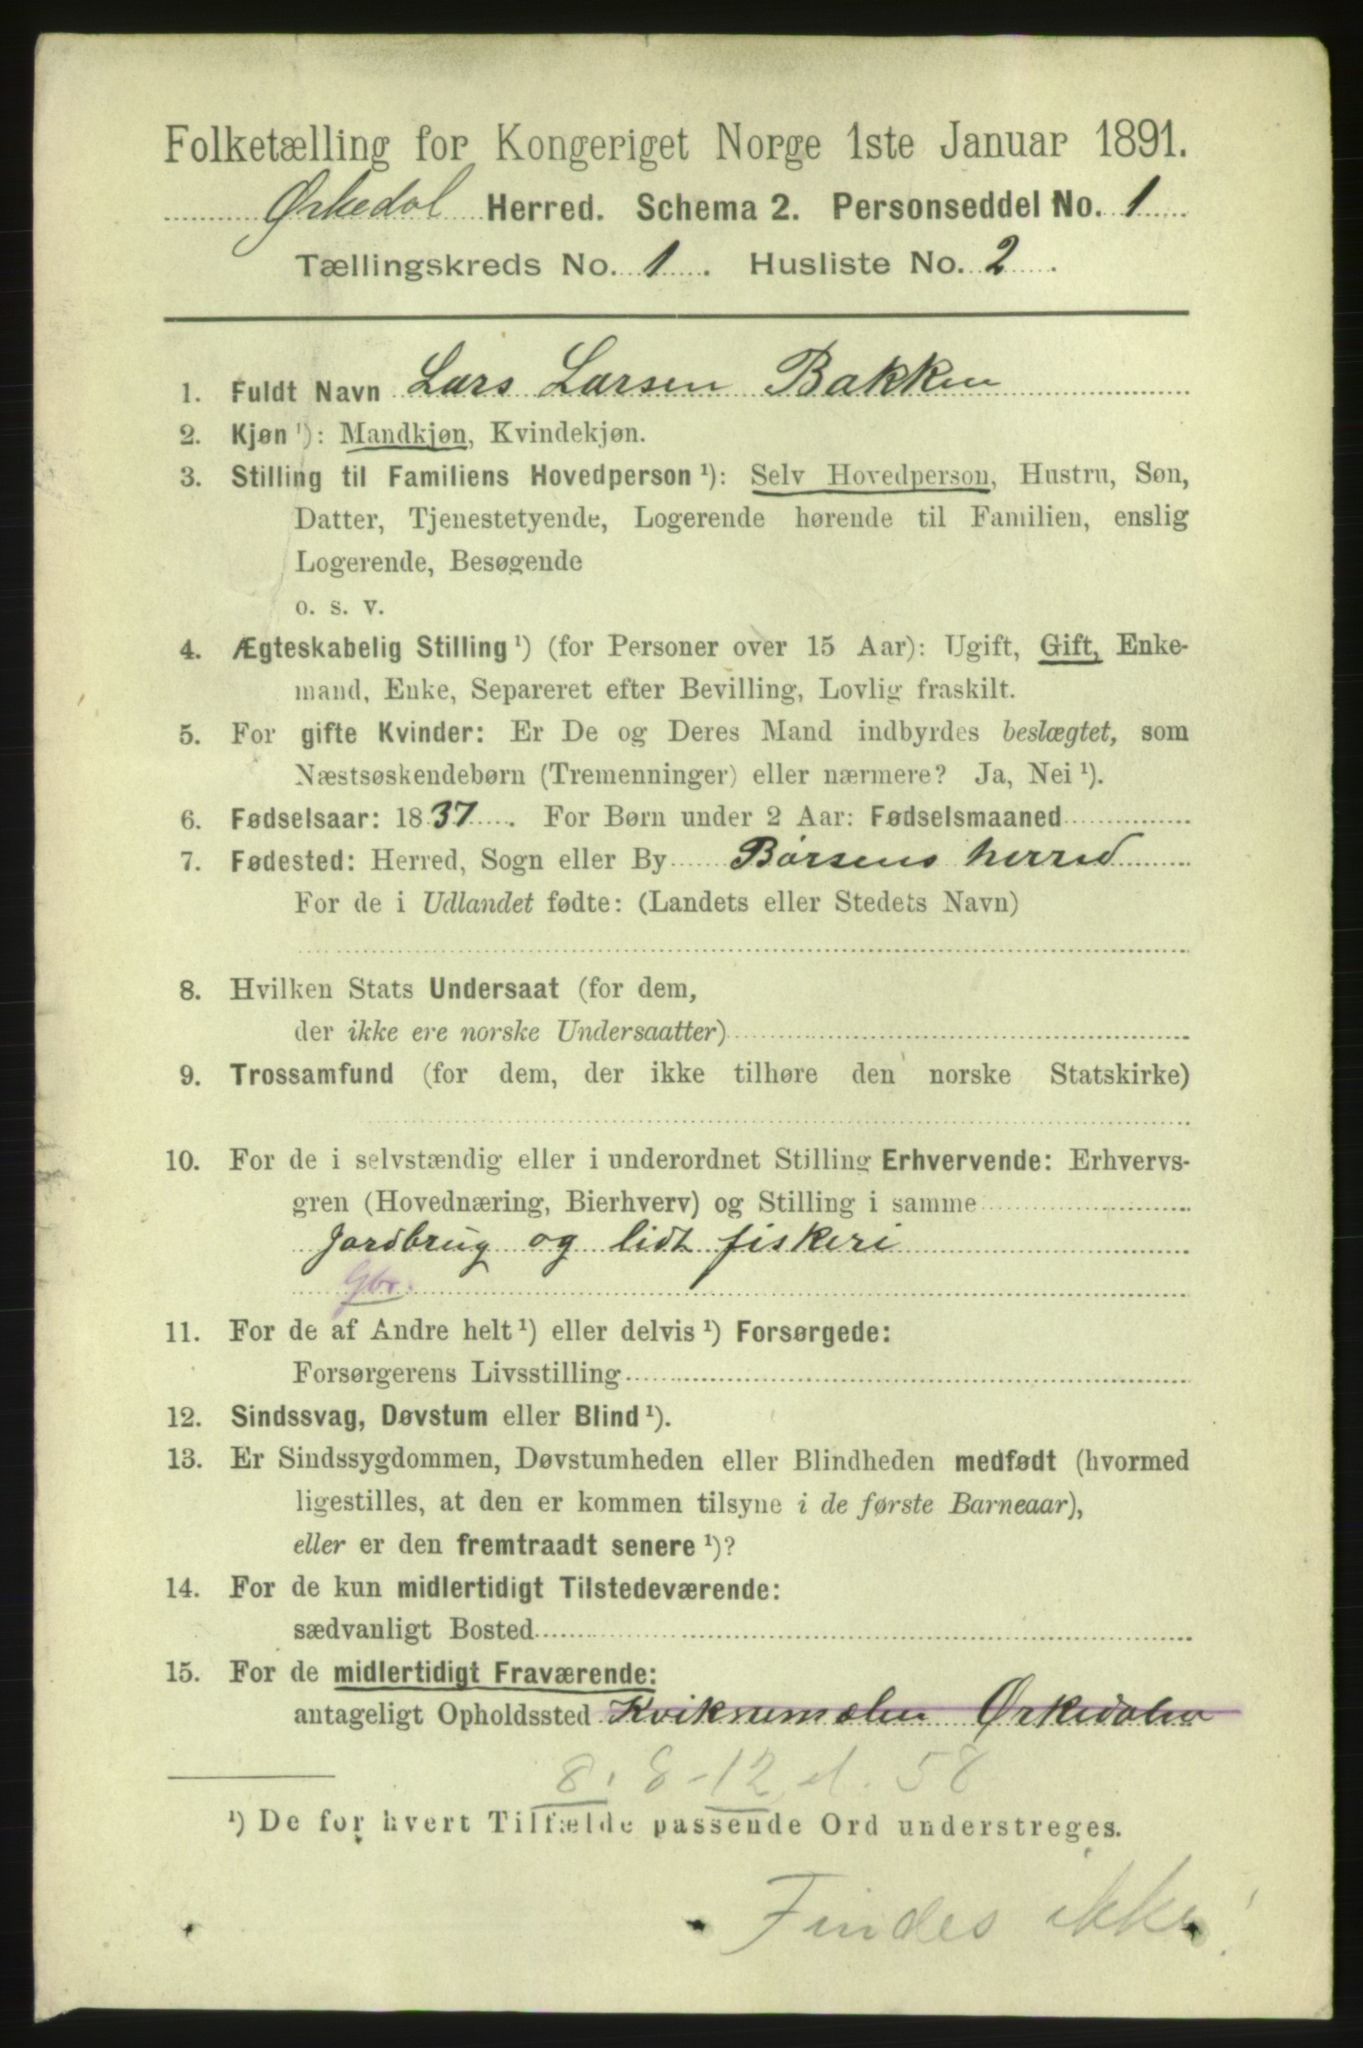 Folketælling for Kongeriget Norge 1ste Januar 1891.
Ørkedal Herred. Schema 2. Personseddel No. 1
Tællingskreds No. 1. Husliste No. 2.
1. Fuldt Navn Lars Larsen Bakken
2. Kjøn ¹): Mandkjøn, Kvindekjøn.
3. Stilling til Familiens Hovedperson ¹): Selv Hovedperson, Hustru, Søn,
Datter, Tjenestetyende, Logerende hørende til Familien, enslig
Logerende, Besøgende
o. s. v.
4. Ægteskabelig Stilling ¹) (for Personer over 15 Aar): Ugift, Gift, Enke-
mand, Enke, Separeret efter Bevilling, Lovlig fraskilt.
5. For gifte Kvinder: Er De og Deres Mand indbyrdes beslægtet, som
Næstsøskendebørn (Tremenninger) eller nærmere? Ja, Nei ¹).
6. Fødselsaar: 1837. For Børn under 2 Aar: Fødselsmaaned
7. Fødested: Herred, Sogn eller By Børsens herred
For de i Udlandet fødte: (Landets eller Stedets Navn)
8. Hvilken Stats Undersaat (for dem,
der ikke ere norske Undersaatter)
9. Trossamfund (for dem, der ikke tilhøre den norske Statskirke)
10. For de i selvstændig eller i underordnet Stilling Erhvervende: Erhvervs-
gren (Hovednæring, Bierhverv) og Stilling i samme
Jordbrug og lidt fiskeri
Gbr.
11. For de af Andre helt ¹) eller delvis ¹) Forsørgede:
Forsørgerens Livsstilling
12. Sindssvag, Døvstum eller Blind ¹).
13. Er Sindssygdommen, Døvstumheden eller Blindheden medfødt (hvormed
ligestilles, at den er kommen tilsyne i de første Barneaar),
eller er den fremtraadt senere ¹)?
14. For de kun midlertidigt Tilstedeværende:
sædvanligt Bosted
15. For de midlertidigt Fraværende:
antageligt Opholdssted Ørkedalen
8. 8-12 d. 58
¹) De for hvert Tilfælde passende Ord understreges.
Findes ikke!